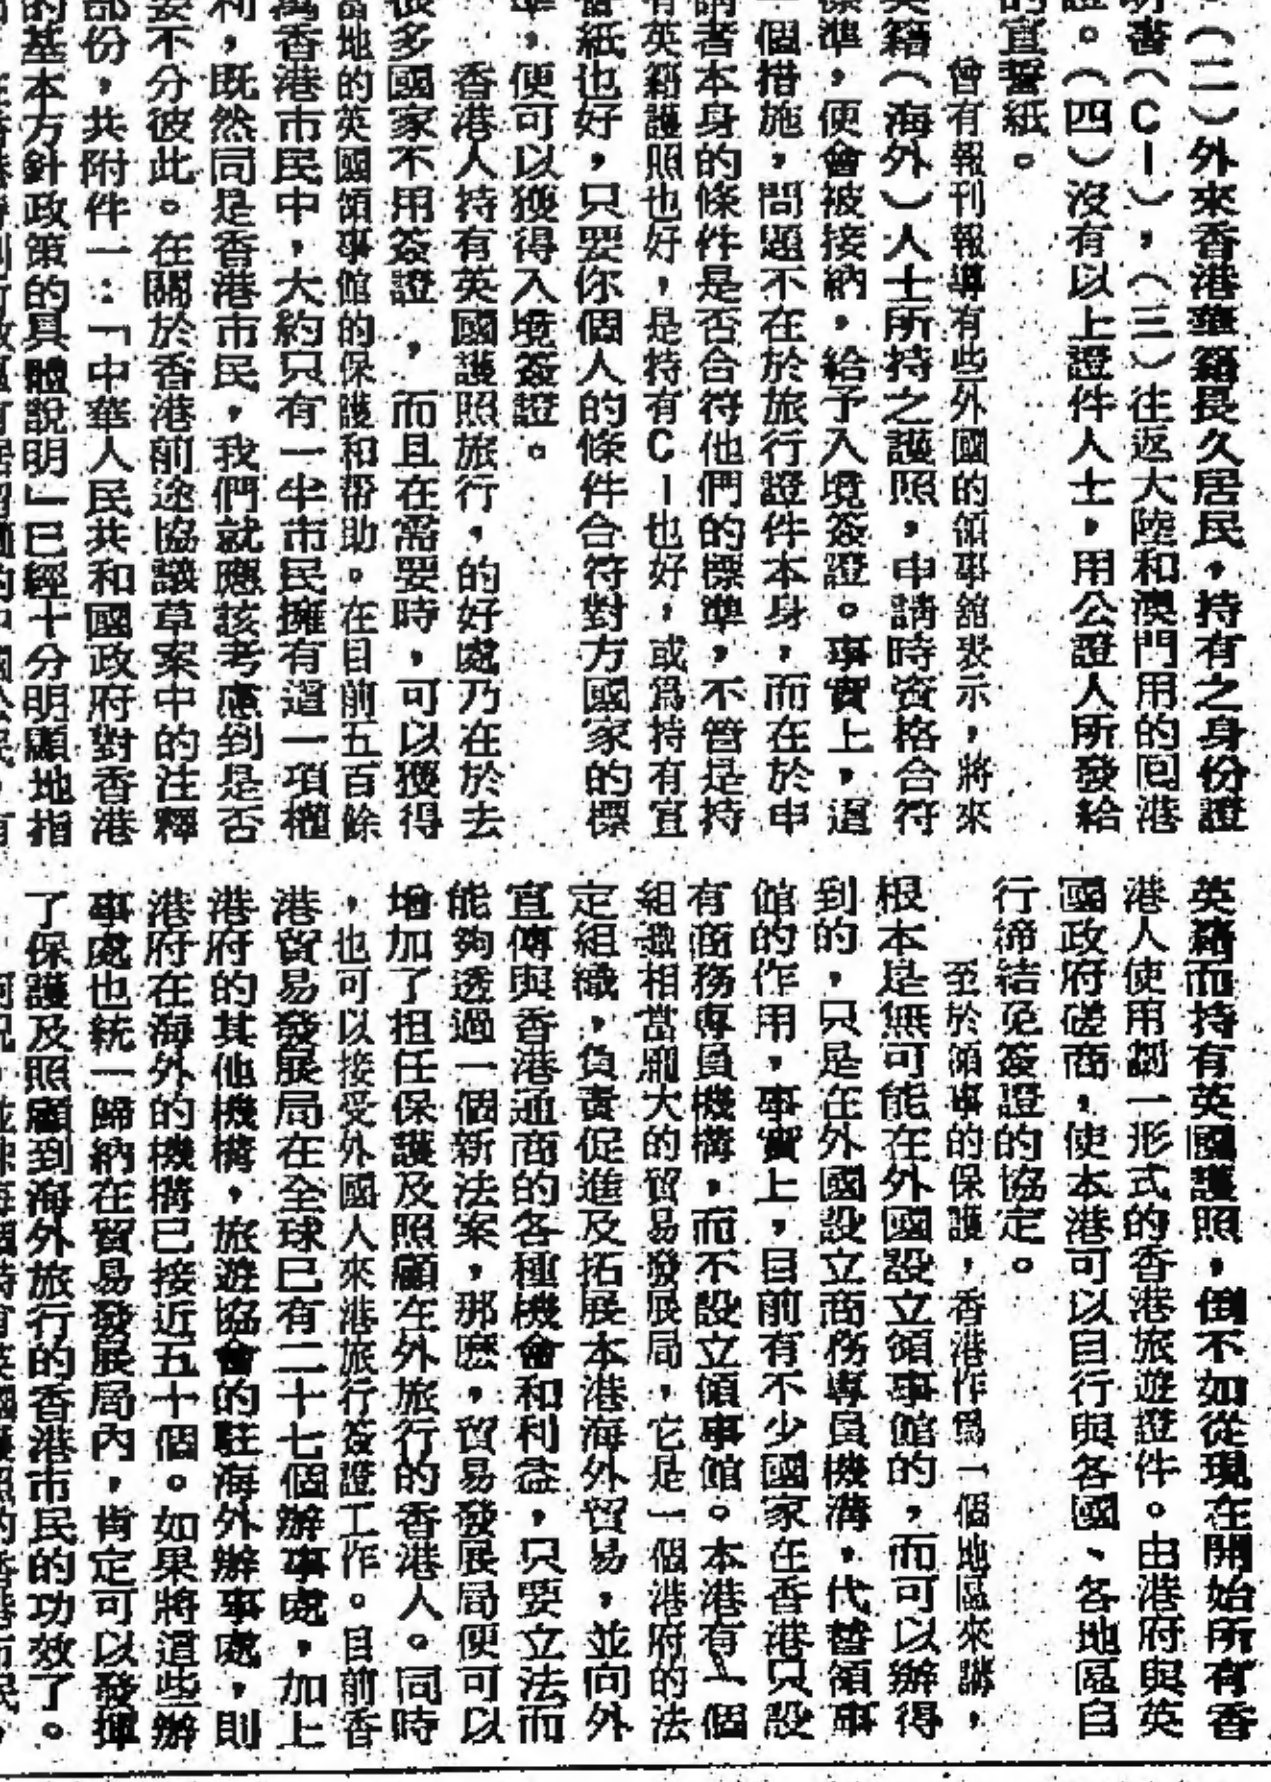 （二）外來香港華籍長久居民，持有之身份證
明書（CI），（三）往返大陸和澳門用的回港
證。（四）沒有以上證件人士，用公證人所發給
的宣誓紙。
曾有報刊報導有些外國的領事舘表示，將來
英籍（海外）人士所持之護照，申請時資格合符
標準，便會被接納，給予入境簽證。事實上，這
一個措施，問題不在於旅行證件本身，而在於申
請者本身的條件是否合符他們的標準，不管是持
有英籍護照也好，是持有CI也好，或爲持有宣
誓紙也好，只要你個人的條件合符對方國家的標
準，便可以獲得入境簽證。
香港人持有英國護照旅行，的好處乃在於去
很多國家不用簽證，而且在需要時，可以獲得
當地的英國領事館的保護和帮助。在目前五百餘
萬香港市民中，大約只有一半市民擁有這一項權
利，既然同是香港市民，我們就應該考慮到是否
要不分彼此。在關於香港前途協議草案中的注釋
部份，共附件一：「中華人民共和國政府對香港
的基本方針政策的具體說明」已經十分明顯地指
英籍而持有英國護照，倒不如從現在開始所有香
港人使用劃一形式的香港旅遊證件。由港府與英
國政府磋商，使本港可以自行與各國、各地區自
行締結免簽證的協定。
至於領事的保護，香港作爲一個地區來講，
根本是無可能在外國設立領事館的，而可以辦得
到的，只是在外國設立商務專員機溝，代替領事
館的作用，事實上，目前有不少國家在香港只設
有商務專員機構，而不設立領事館。本港有一個
組織相當龐大的貿易發展局，它是一個港府的法
定組織，負責促進及拓展本港海外貿易，並向外
宣傳與香港通商的各種機會和利益，只要立法而
能夠透過一個新法案，那麽，貿易發展局便可以
增加了担任保護及照顧在外旅行的香港人。同時
，也可以接受外國人來港旅行簽證工作。目前香
港貿易發展局在全球已有二十七個辦事處，加上
港府的其他機構，旅遊協會的駐海外辦事處，則
港府在海外的機構已接近五十個。如果將這些辦
事處也統一歸納在貿易發展局內，肯定可以發揮
了保護及照顧到海外旅行的香港市民的功效了。